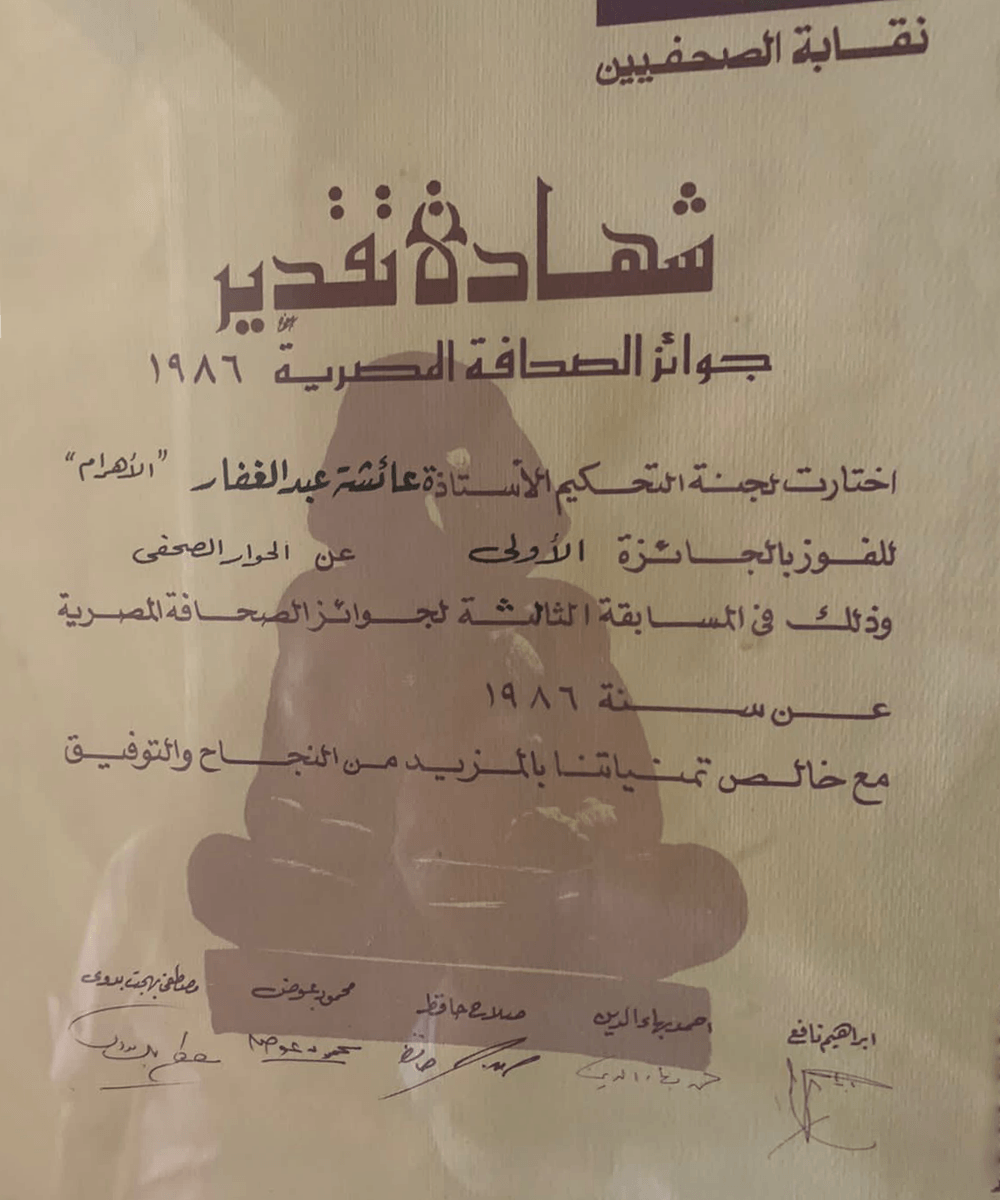 نقابة الصحفيين
شهادة تقدير
جوائز الصحافة المصرية ١٩٨٦
اختارت لجنة التحكيم الأستاذة عائشة عبد الغفار "الأهرام"
للفوز بالجائزة الأولى عن الحوار الصحفى
وذلك فى المسابقة الثالثة لجوائز الصحافة المصرية
عن سنة ١٩٨٦
مع خالص تمنياتنا بالمزيد من النجاح والتوفيق
ابراهيم نافع احمد بهاء الدين صلاح حافظ محمود عوض مصطفى بهجت بدوى
احمد بهاء الدين صلاح حافظ محمود عوض مصطفى بهجت بدوى